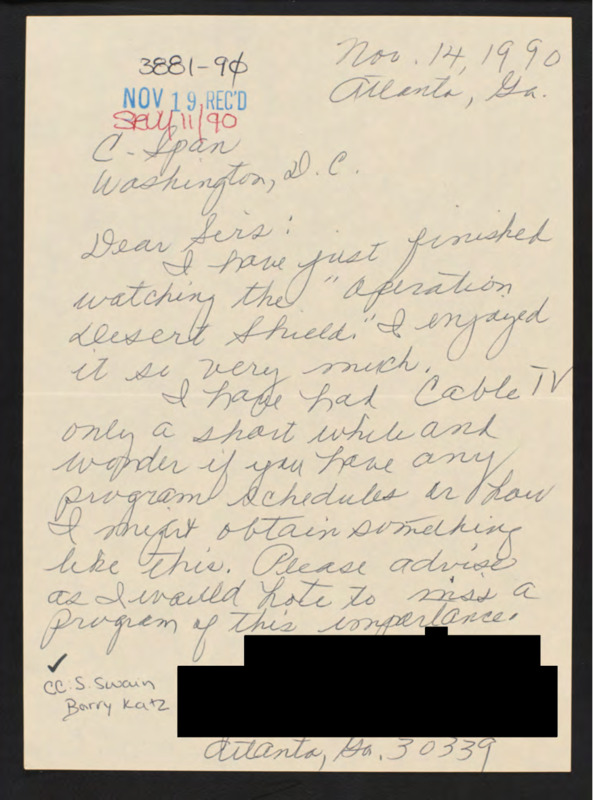 3881-90
Nov. 14, 1990
NOV 19 REC'D
Atlanta, Ga.
11/90
C-Span
Washington, D.C.
Dear Sirs:
I have just finished
watching the "Operation
Desert Shield." I enjoyed
it so very much.
I have had Cable TV
only a short while and
wonder if you have any
program schedules or how
I might obtain something
like this. Please advise
as I would hate to miss a
program of this importance.
CC: S. Swain
Barry Katz
Atlanta, Ga. 30339